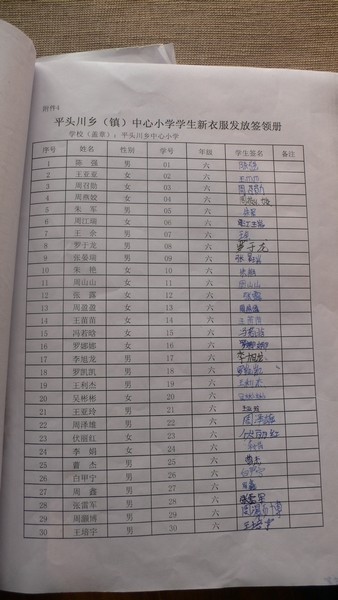 附件4
平头川乡（镇）中心小学学生新衣服发放签领册
学校（盖章）：平头川乡中心小学
序号 姓名 性别 学号 年级 学生签名 备注
1 陈强 男 01 六 陈强
2 王亚亚 女 02 六
3 周召勋 女 03 六 周召勋
4 周燕姣 女 04 六
5 朱军 男 05 六
6 周江瑞 女 06 六
7 王余 男 07 六
8 罗于龙 男 08 六 罗于龙
9 张晏瑞 男 09 六
10 朱艳 女 10 六
11 周山山 女 11 六 周山山
12 张露 女 12 六 张露
13 周盈盈 女 13 六
14 王苗苗 女 14 六 王苗苗
15 冯若晗 女 15 六
16 罗娜娜 女 16 六
17 李旭龙 男 17 六
18 罗凯凯 男 18 六
19 王利杰 男 19 六 王利杰
20 吴彬彬 女 20 六
21 王亚玲 男 21 六
22 周泽雄 男 22 六 周泽雄
23 伏丽红 女 23 六
24 李娟 女 24 六
25 曹杰 男 25 六 曹杰
26 白甲宁 男 26 六
27 周鑫 男 27 六 周鑫
28 张雷军 男 28 六
29 周灏博 男 29 六
30 王培宇 男 30 六 王培宇